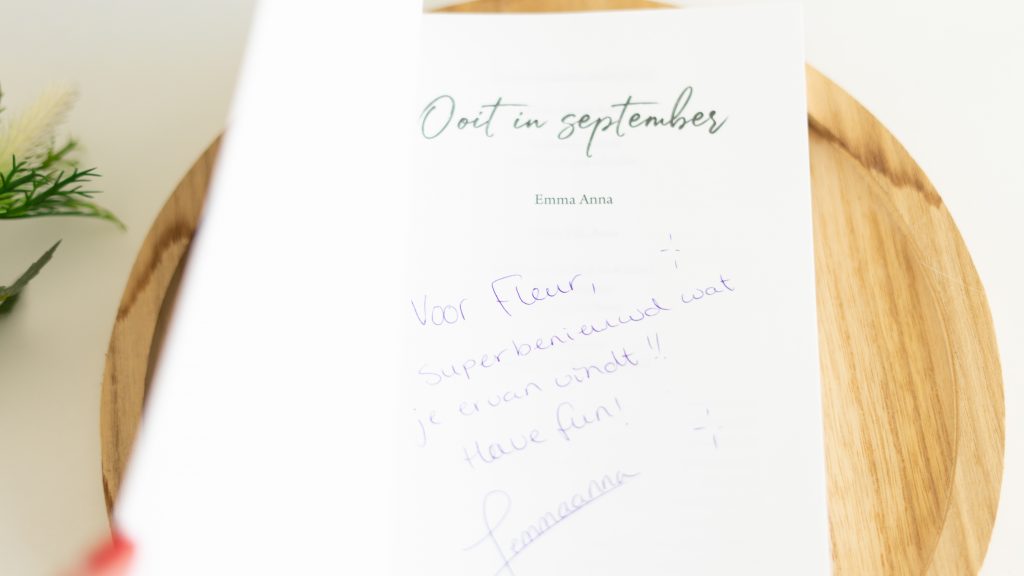 Ooit in september
Emma Anna
Voor Fleur,
superbenieuwd wat
je ervan vindt!!
Have fun!
Emmaanna